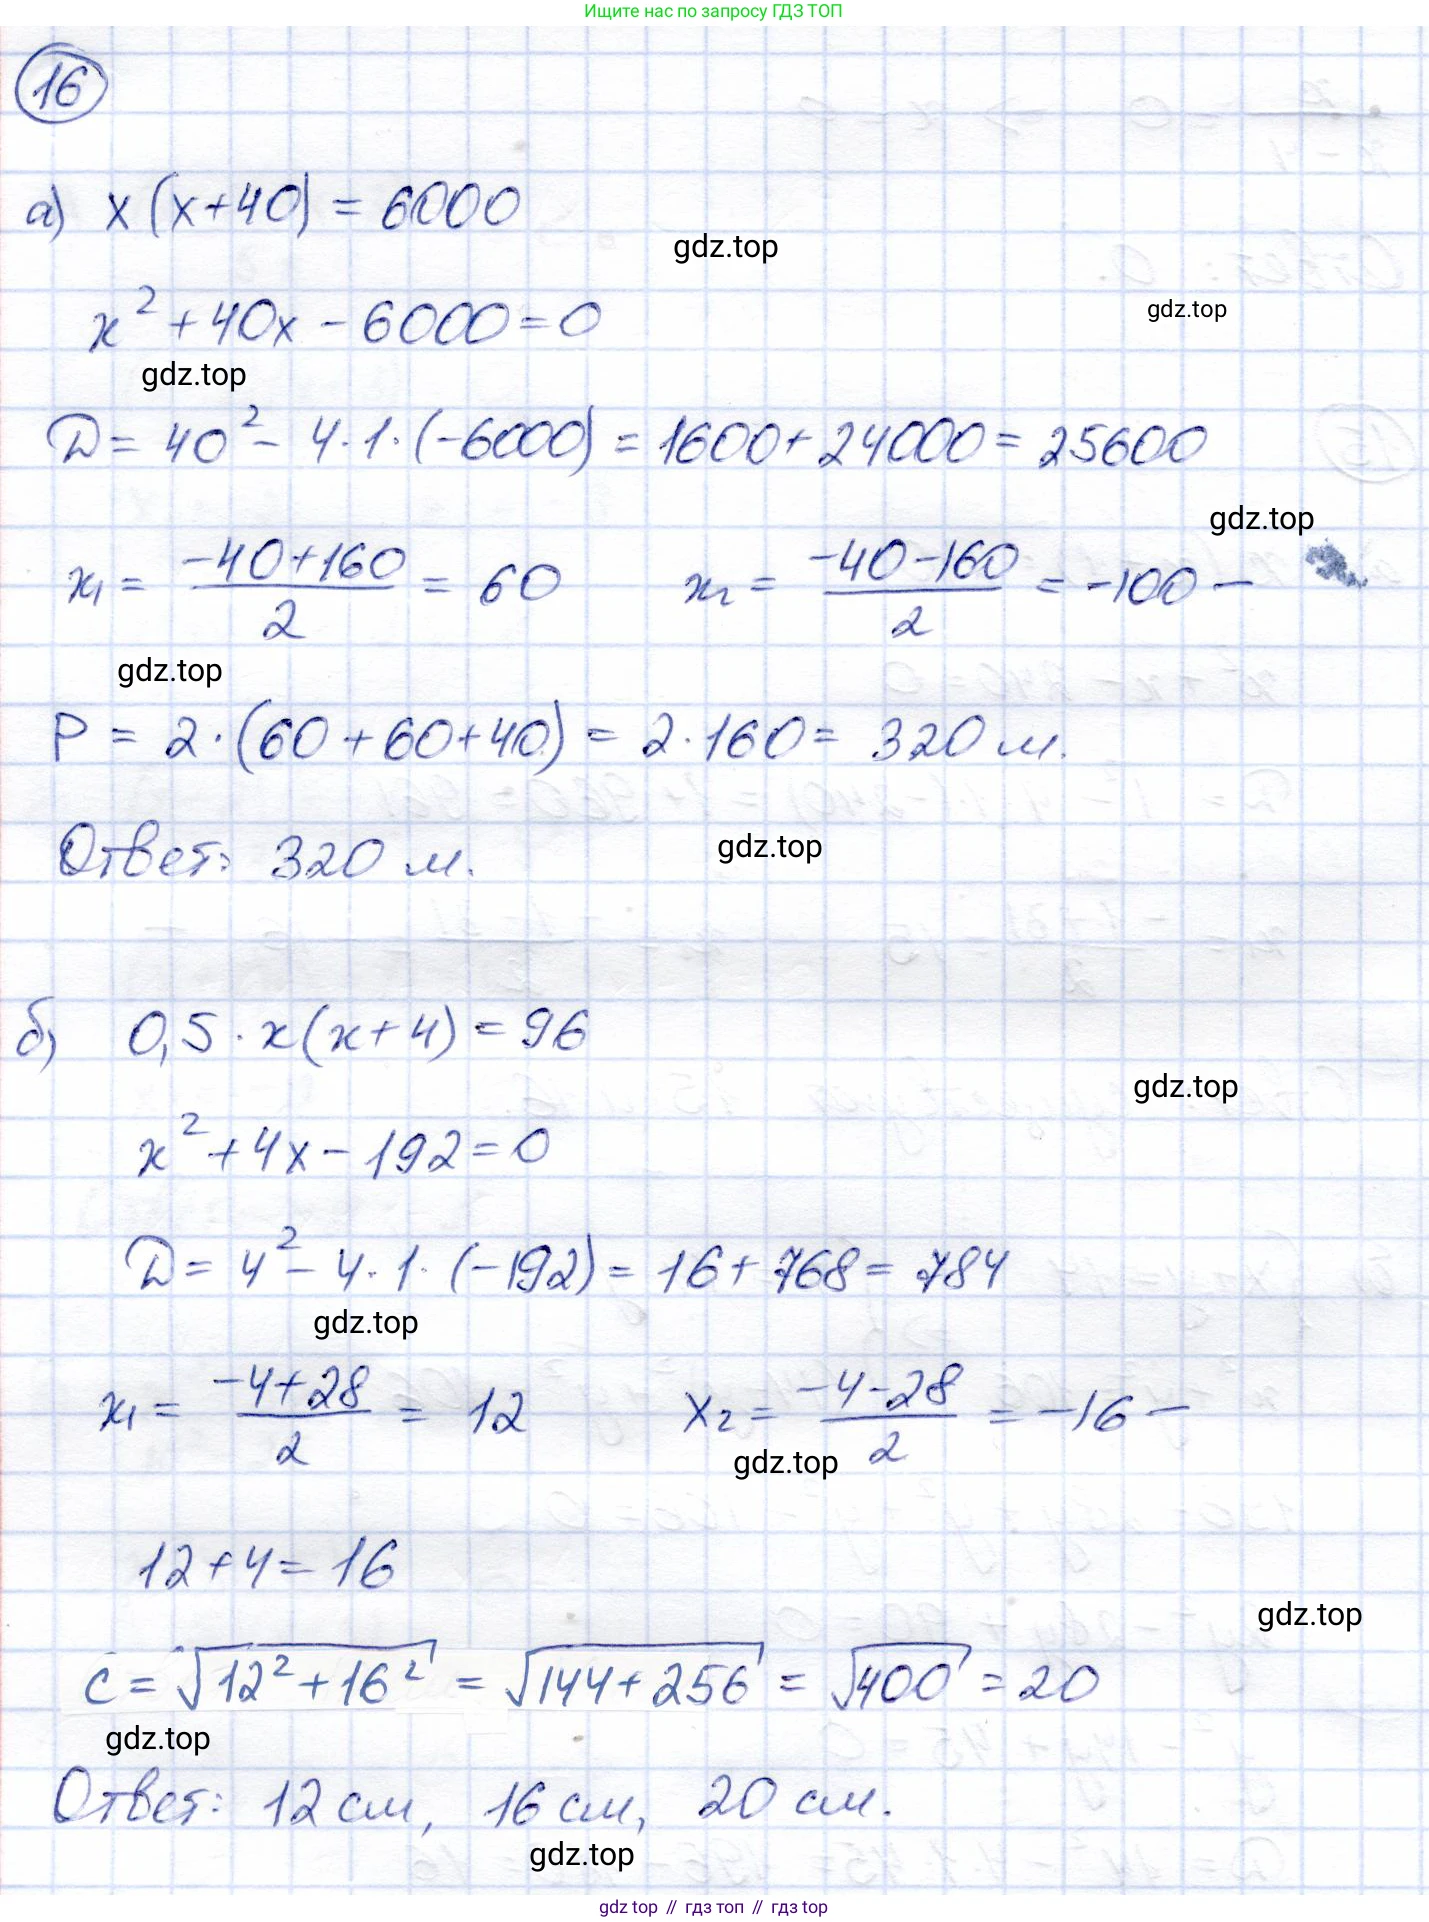 Ищите нас по запросу ГДЗ ТОП
16
а) x(x+40) = 6000
gdz.top
gdz.top
x² + 40x - 6000 = 0
gdz.top
D = 40² - 4·1·(-6000) = 1600 + 24000 = 25600
gdz.top
x₁ = (-40+160)/2 = 60   x₂ = (-40-160)/2 = -100 -
gdz.top
P = 2·(60+60+40) = 2·160 = 320 м.
gdz.top
Ответ: 320 м.
б) 0,5·x(x+4) = 96
gdz.top
x² + 4x - 192 = 0
D = 4² - 4·1·(-192) = 16 + 768 = 784
gdz.top
x₁ = (-4+28)/2 = 12   x₂ = (-4-28)/2 = -16 -
gdz.top
12+4 = 16
gdz.top
c = √(12²+16²) = √(144+256) = √400 = 20
gdz.top
Ответ: 12 см, 16 см, 20 см.
gdz.top
gdz top // гдз топ // гдз top